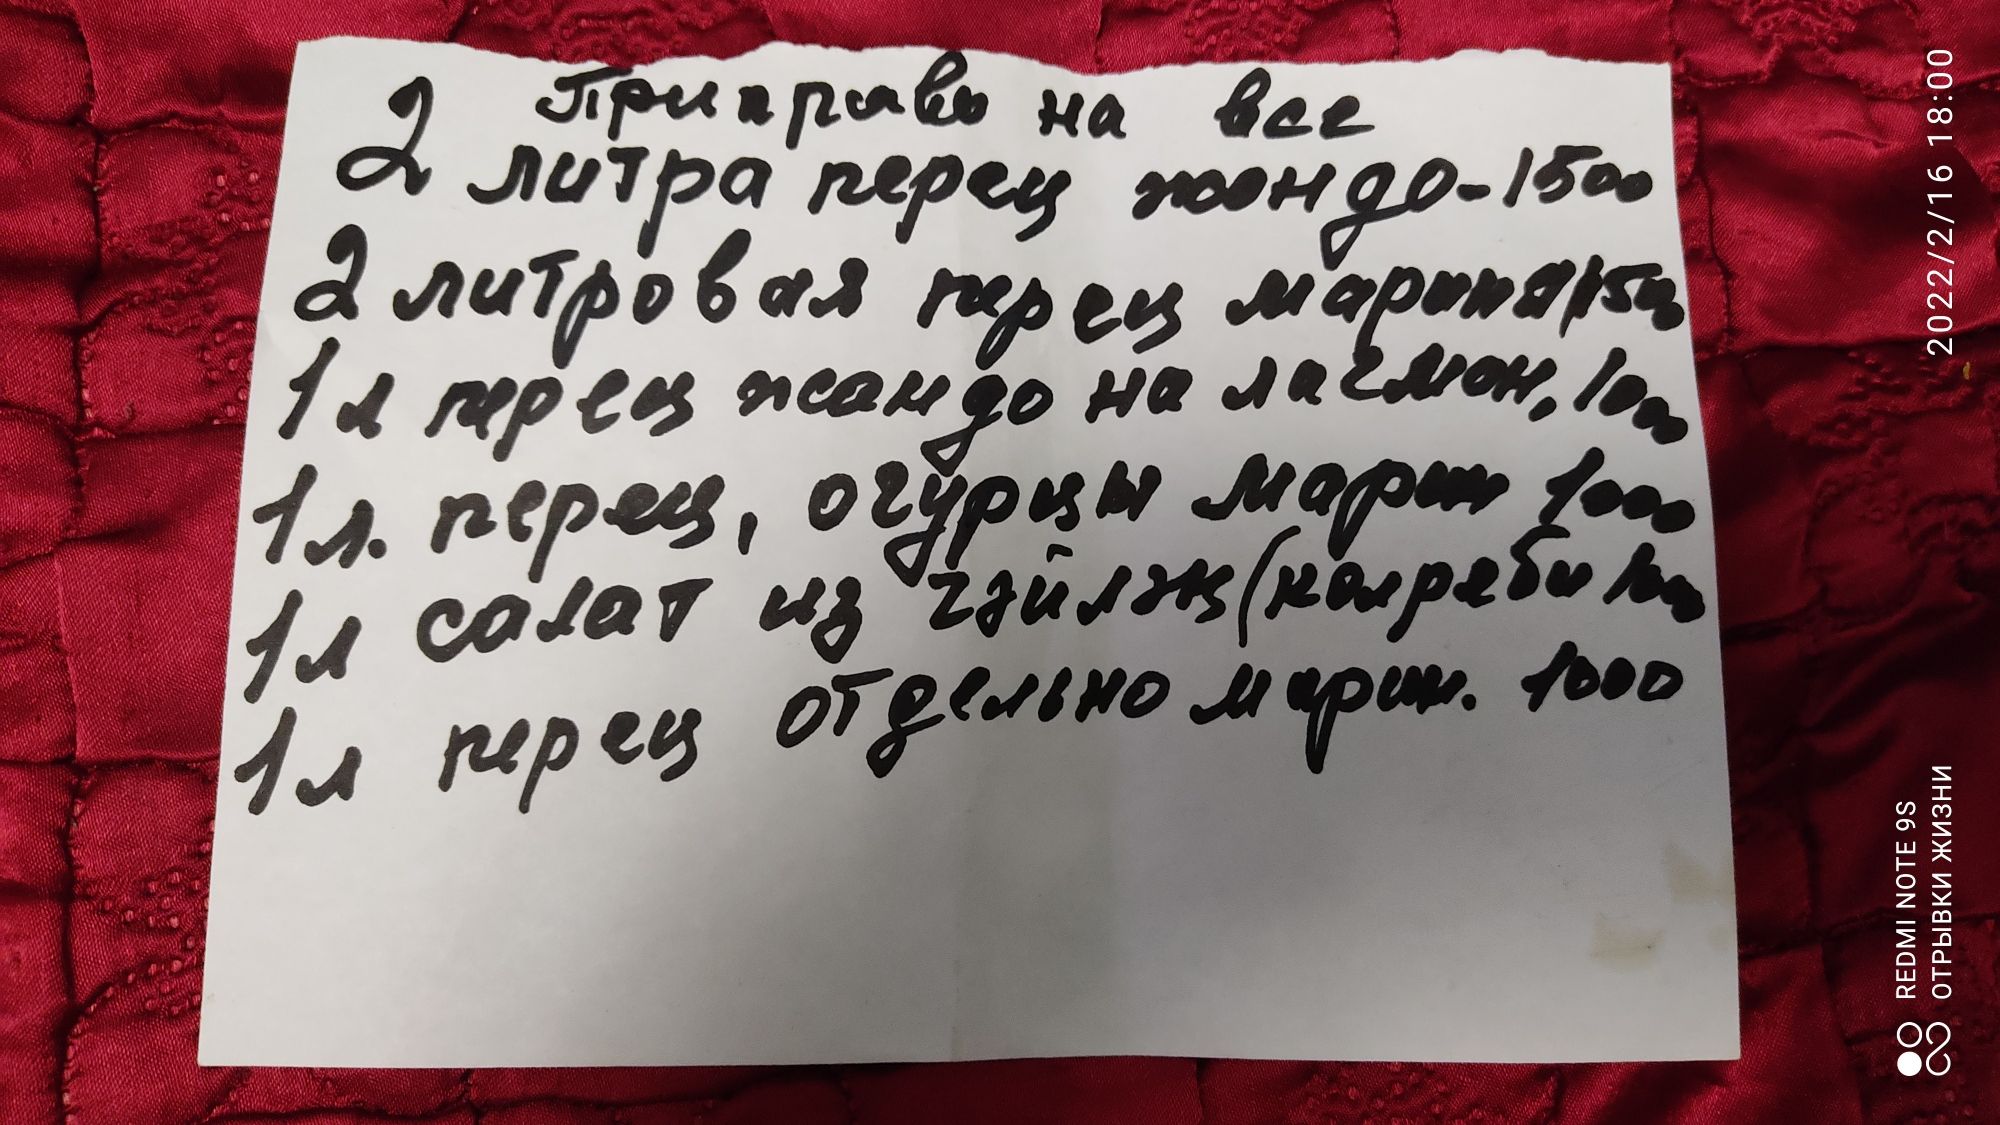 Приправы на все
2 литра перец жондо-1500
2 литровая перец марина 1500
1л перец жандо на лагмон, 1000
1л. перец, огурцы марин 1000
1л салат из гэйлэц (колряби 1000
1л перец отдельно марин. 1000
2022/2/16 18:00
REDMI NOTE 9S
ОТРЫВКИ ЖИЗНИ